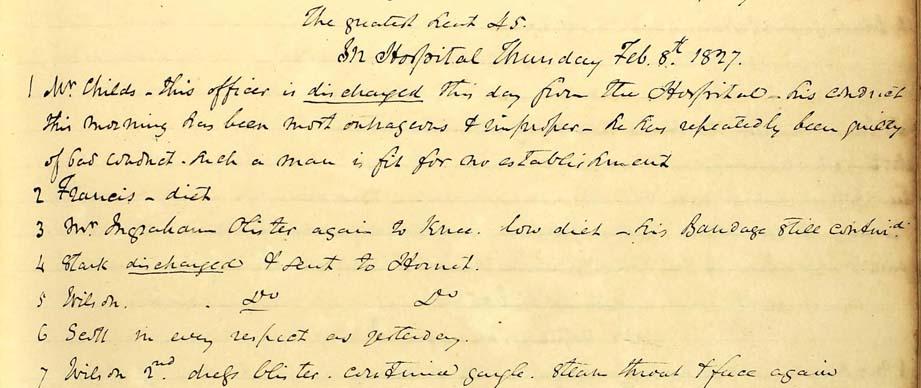 The greatest heat 45.
In Hospital Thursday Feb. 8th. 1827.
1 Mr Childs - this officer is discharged this day from the Hospital - his conduct
this morning has been most outrageous & improper - he has repeatedly been guilty
of bad conduct - such a man is fit for no establishment
2 Francis - diet
3 Mr Ingraham blister again to knee. low diet - his Bandage still contind.
4 Stark discharged & sent to Hornet.
5 Wilson. - Do Do
6 Scott in every respect as yesterday.
7 Wilson 2nd. dress blister. continue gargle. steam throat & face again